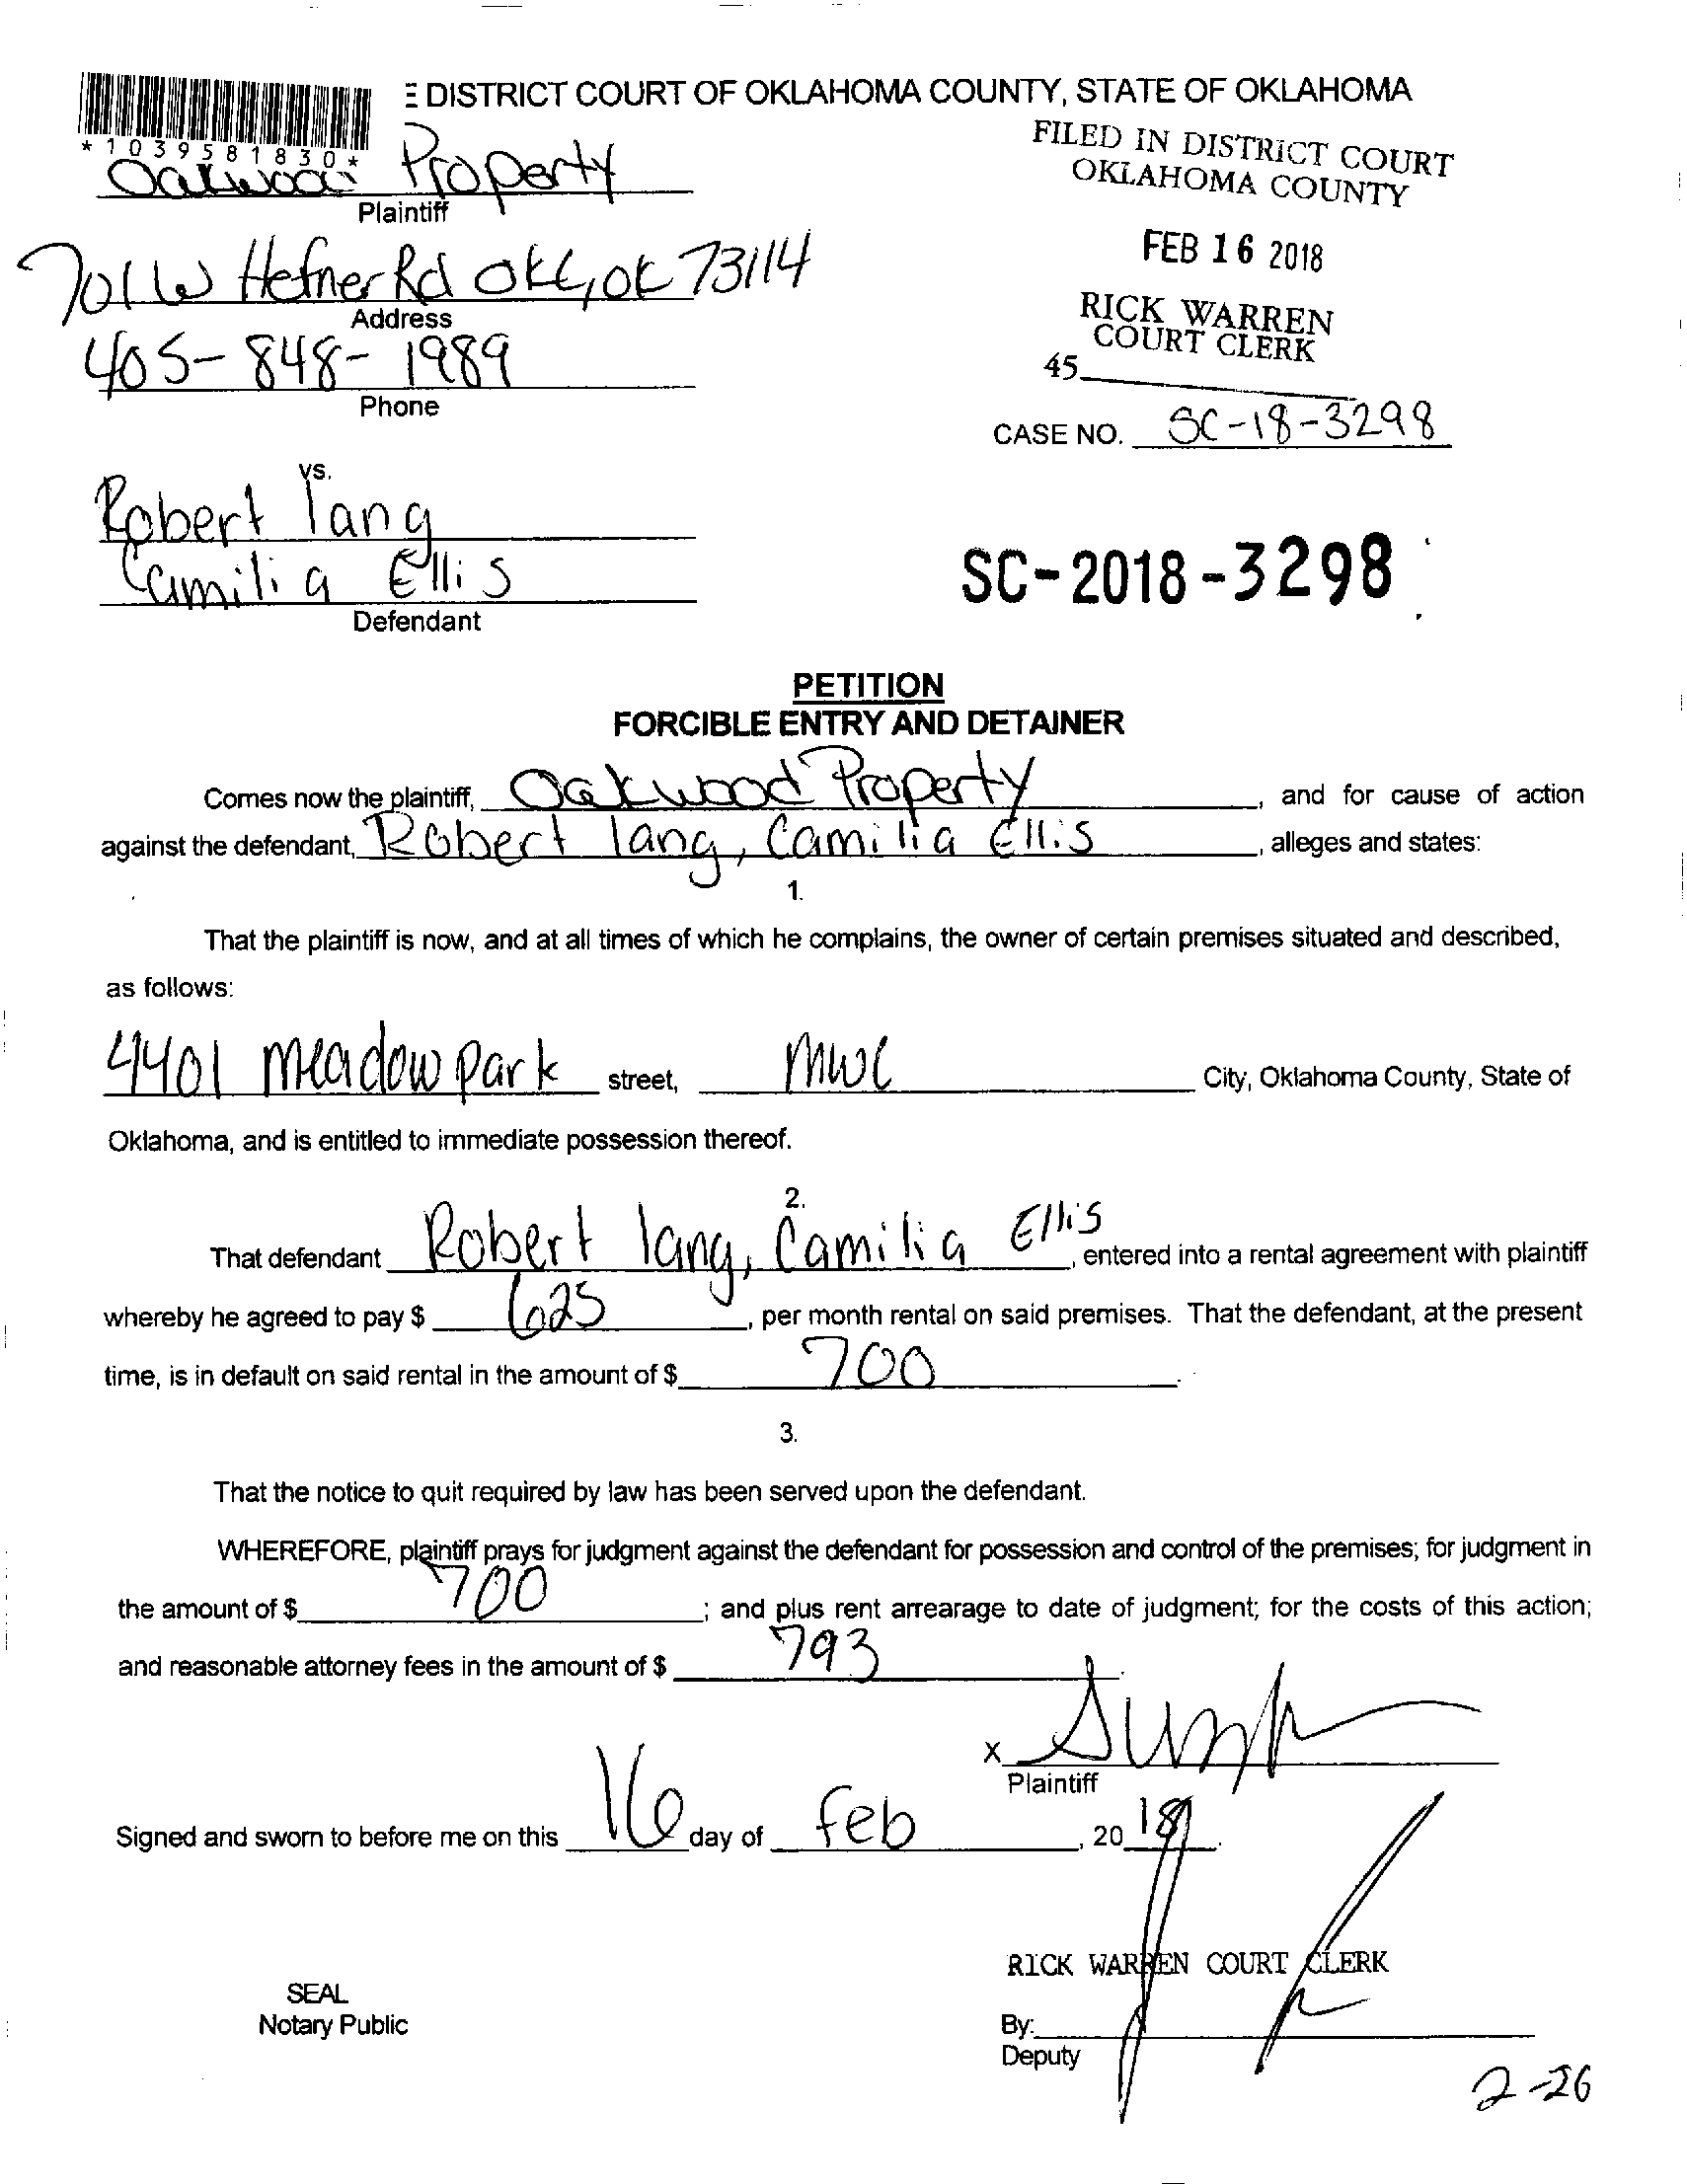 DISTRICT COURT OF OKLAHOMA COUNTY, STATE OF OKLAHOMA
*1039581830*
Oakwood Property
Plaintiff
FILED IN DISTRICT COURT
OKLAHOMA COUNTY
701 W Hefner Rd OKC, OK 73114
Address
FEB 16 2018
405-848-1989
Phone
RICK WARREN
COURT CLERK
45
CASE NO. SC-18-3298
vs.
Robert lang
Camilia Ellis
Defendant
SC-2018-3298
PETITION
FORCIBLE ENTRY AND DETAINER
Comes now the plaintiff, Oakwood Property, and for cause of action
against the defendant, Robert lang, Camilia Ellis, alleges and states:
1.
That the plaintiff is now, and at all times of which he complains, the owner of certain premises situated and described,
as follows:
4401 Meadow park street, MWC City, Oklahoma County, State of
Oklahoma, and is entitled to immediate possession thereof.
2.
That defendant Robert lang, Camilia Ellis, entered into a rental agreement with plaintiff
whereby he agreed to pay $ 625, per month rental on said premises. That the defendant, at the present
time, is in default on said rental in the amount of $ 700.
3.
That the notice to quit required by law has been served upon the defendant.
WHEREFORE, plaintiff prays for judgment against the defendant for possession and control of the premises; for judgment in
the amount of $ 700; and plus rent arrearage to date of judgment; for the costs of this action;
and reasonable attorney fees in the amount of $ 793.
X
Plaintiff
Signed and sworn to before me on this 16 day of Feb, 20 18.
RICK WARREN COURT CLERK
SEAL
Notary Public
By:
Deputy
2-26